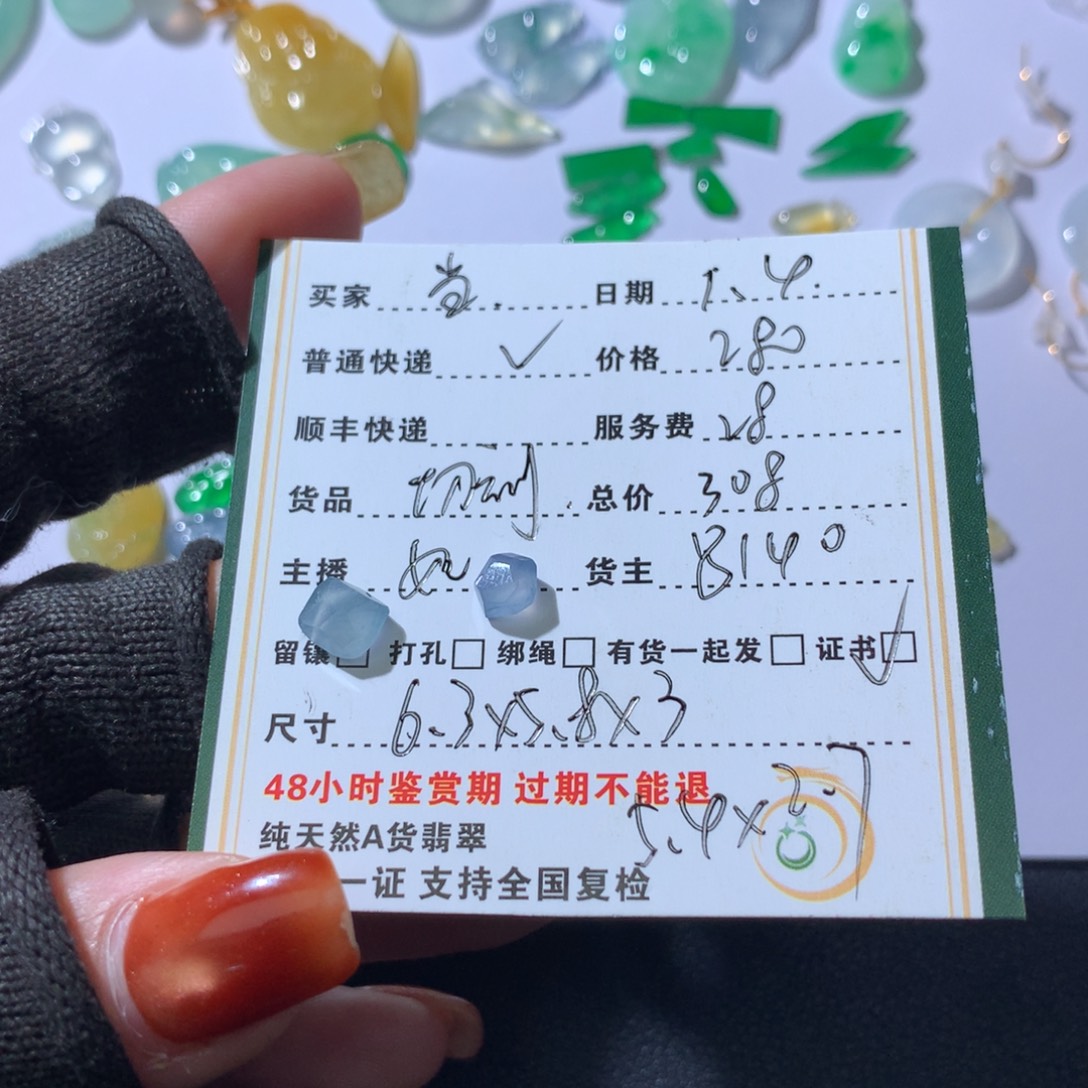 买家 当. 日期 1.4.
普通快递 ✓ 价格 280
顺丰快递 服务费 28
货品 切割 总价 308
主播 如 货主 8140
留镶□ 打孔□ 绑绳□ 有货一起发□ 证书☑
尺寸 6.3x5.8x3
5.4x2.7
48小时鉴赏期 过期不能退
纯天然A货翡翠
一证 支持全国复检